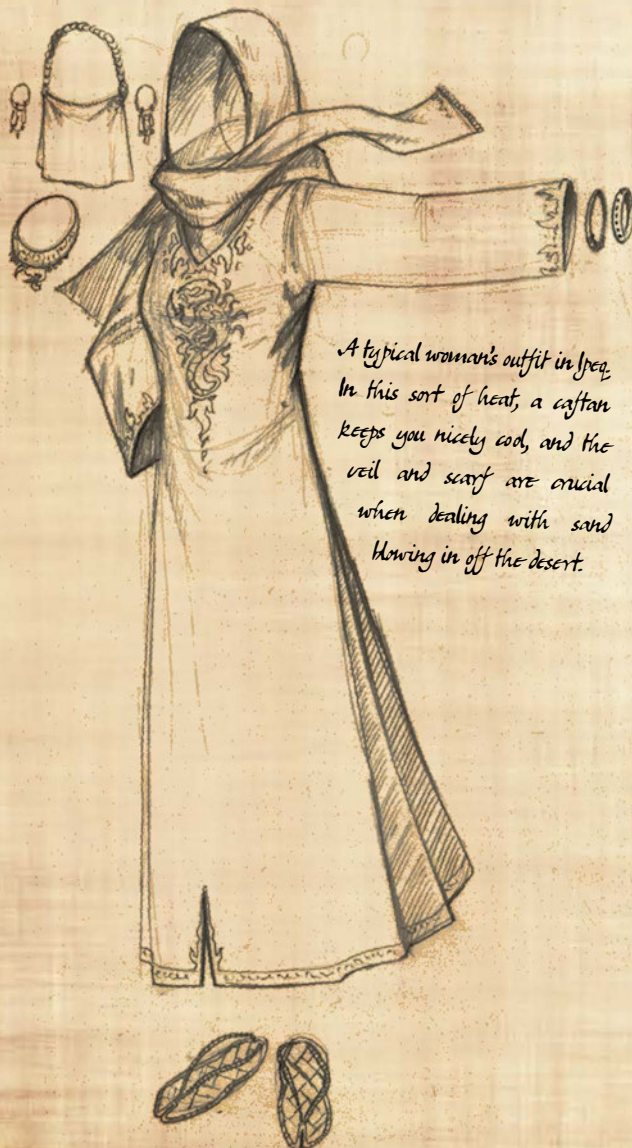 A typical woman's outfit in Ipeq.
In this sort of heat, a caftan
keeps you nicely cool, and the
veil and scarf are crucial
when dealing with sand
blowing in off the desert.